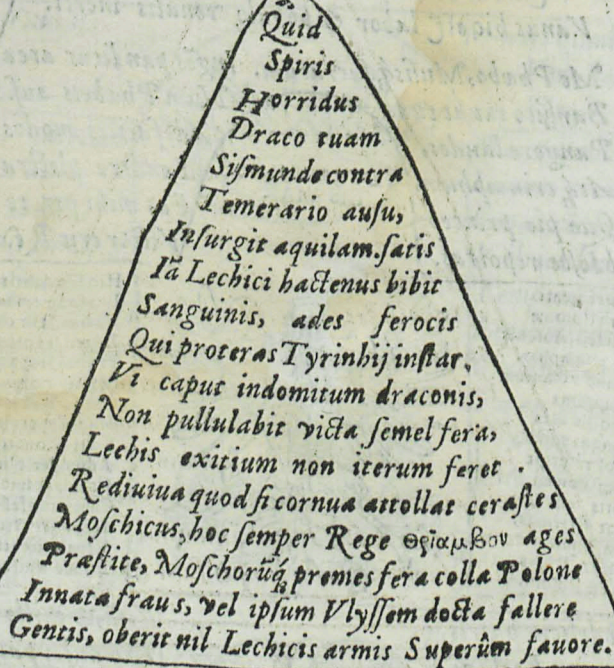 Quid
Spiris
Horridus
Draco tuam
Sisſmunde contra
Temerario auſu,
Inſurgit aquilam. ſatis
Iã Lechici hactenus bibit
Sanguinis, ades ferocis
Qui proteras Tyrinhij inſtar,
Vi caput indomitum draconis,
Non pullulabit victa ſemel fera,
Lechis exitium non iterum feret.
Rediuiua quod ſi cornua attollat ceraſtes
Moſchicus, hoc ſemper Rege θρίαμβον ages
Præſtite, Moſchorũq́; premes fera colla Polone
Innata fraus, vel ipſum Vlyſſem docta fallere
Gentis, oberit nil Lechicis armis Superûm fauore.